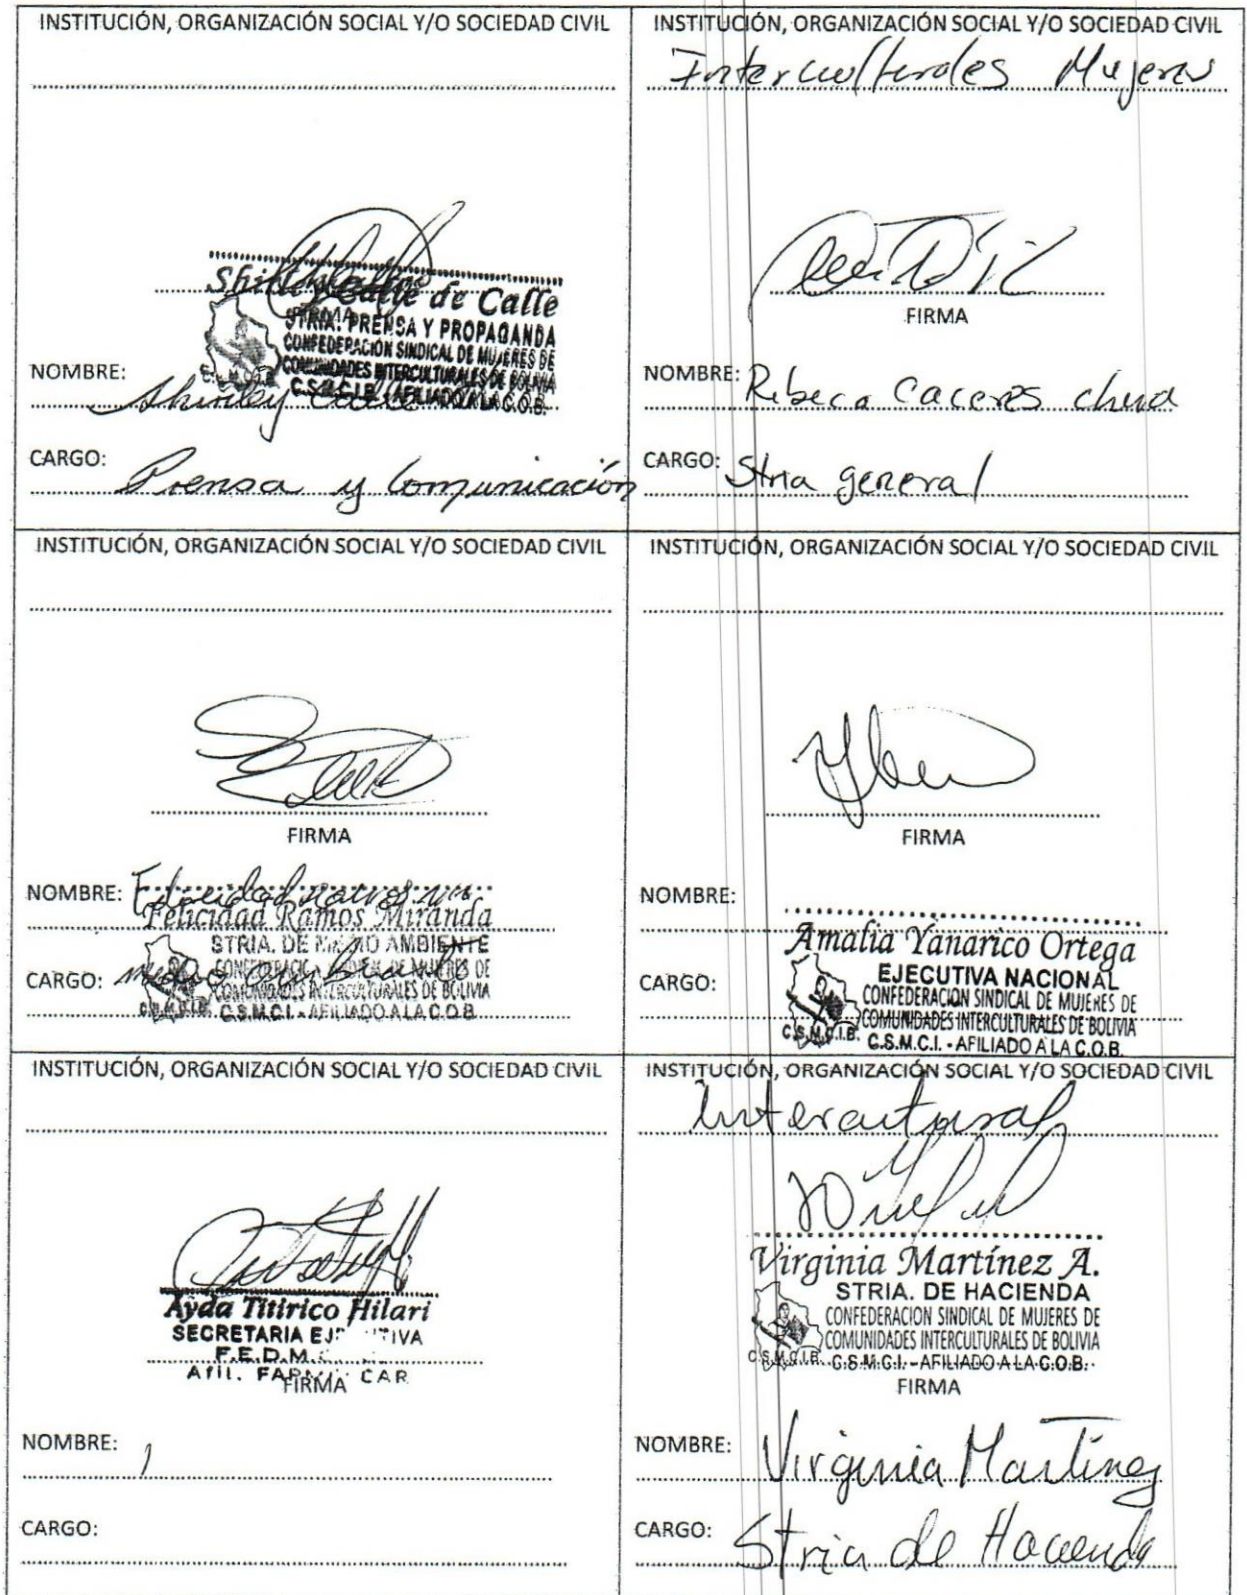 INSTITUCIÓN, ORGANIZACIÓN SOCIAL Y/O SOCIEDAD CIVIL
Shirley Calle de Calle
STRIA. PRENSA Y PROPAGANDA
FIRMA
CONFEDERACIÓN SINDICAL DE MUJERES DE
COMUNIDADES INTERCULTURALES DE BOLIVIA
C.S.M.C.I.B. - AFILIADO A LA C.O.B.
NOMBRE: Shirley Calle
CARGO: Prensa y Comunicación
INSTITUCIÓN, ORGANIZACIÓN SOCIAL Y/O SOCIEDAD CIVIL
Interculturales Mujeres
FIRMA
NOMBRE: Rebeca Caceres
CARGO: Stria general
INSTITUCIÓN, ORGANIZACIÓN SOCIAL Y/O SOCIEDAD CIVIL
FIRMA
NOMBRE: Felicidad Ramos
Felicidad Ramos Miranda
STRIA. DE MEDIO AMBIENTE
CONFEDERACION SINDICAL DE MUJERES DE
CARGO: medio ambiente
COMUNIDADES INTERCULTURALES DE BOLIVIA
C.S.M.C.I. - AFILIADO A LA C.O.B.
INSTITUCIÓN, ORGANIZACIÓN SOCIAL Y/O SOCIEDAD CIVIL
FIRMA
NOMBRE:
Amalia Yanarico Ortega
EJECUTIVA NACIONAL
CARGO:
CONFEDERACION SINDICAL DE MUJERES DE
COMUNIDADES INTERCULTURALES DE BOLIVIA
C.S.M.C.I.B.
C.S.M.C.I. - AFILIADO A LA C.O.B.
INSTITUCIÓN, ORGANIZACIÓN SOCIAL Y/O SOCIEDAD CIVIL
Ayda Titirico Hilari
SECRETARIA EJECUTIVA
F.E.D.M.C.
Afil.
FIRMA
NOMBRE:
CARGO:
INSTITUCIÓN, ORGANIZACIÓN SOCIAL Y/O SOCIEDAD CIVIL
Intercutural
Virginia Martínez A.
STRIA. DE HACIENDA
CONFEDERACION SINDICAL DE MUJERES DE
COMUNIDADES INTERCULTURALES DE BOLIVIA
C.S.M.C.I.B.
C.S.M.C.I. - AFILIADO A LA C.O.B.
FIRMA
NOMBRE: Virginia Martínez
CARGO: Stria de Hacienda